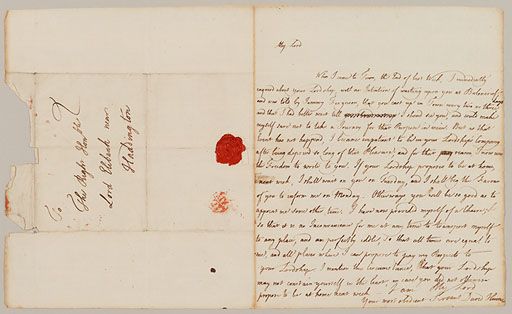 To
The Right Honble
Lord Elibank near
Haddington
My Lord
When I came to Town, the End of last Week, I immediately
enquird about your Lordship, with an Intention of waiting upon you at Balancrief
and was told by Sammy Ferguson, that you came up to Town every two or three days
and that I had better wait till I shoud see you, and write make
myself sure not to take a Journey for that Purpose in vain. But as that
Event has not happend, I became impatient to have your Lordships Company
after being deprivd so long of that Pleasure; and for that reason have usd
the Freedom to write to you. If your Lordship propose to be at home,
next week, I shall wait on you on Tuesday, and I shall the Favour
of you to inform me on Monday. Otherways you will be so good as to
appoint me some other time. I have now provided myself of a Chaise,
so that it is no Inconvenience for me at any time to transport myself
to any place, and am perfectly idle, so that all times are equal to
me, and all places where I can propose to pay my Respects to
your Lordship. I mention these circumstances, that your Lordship
may not constrain yourself in the least, in case you did not otherwise
propose to be at home next week. I am My Lord
Your most obedient Servant David Hume